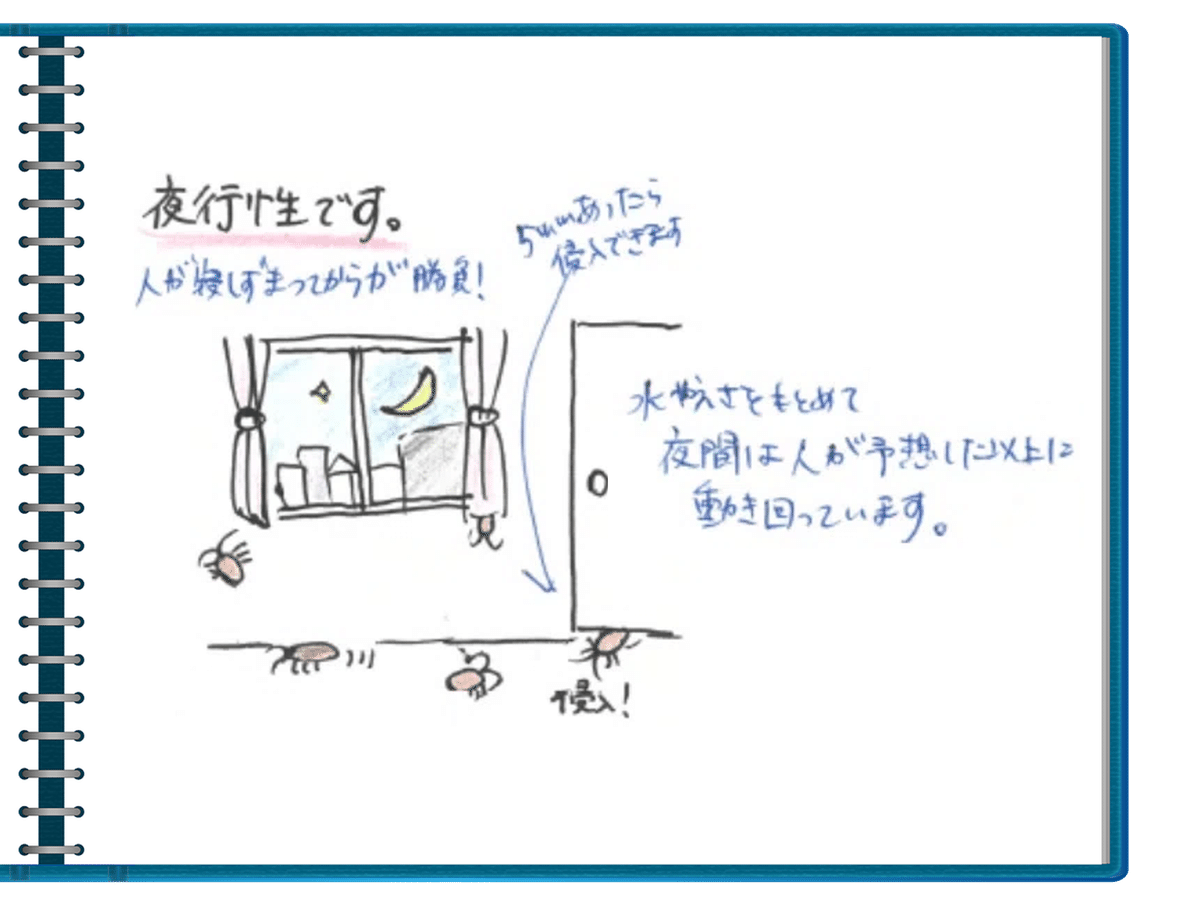 夜行性です。
人が寝しずまってからが勝負!
5mmあったら
侵入できます
水やえさをもとめて
夜間は人が予想した以上に
動き回っています。
侵入!